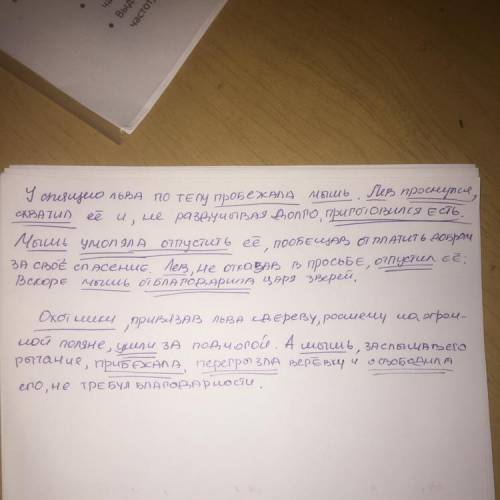 ча
Выд
частот
У спящего льва по телу пробежала мышь. Лев проснулся,
схватил её и, не раздумывая долго, приготовился есть.
Мышь умоляла отпустить её, пообещав отплатить добром
за своё спасение. Лев, не отказав в просьбе, отпустил её.
Вскоре мышь отблагодарила царя зверей.
Охотники, привязав льва к дереву, росшему на огром-
ной поляне, ушли за подмогой. А мышь, заслышав его
рычание, прибежала, перегрызла верёвку и освободила
его, не требуя благодарности.